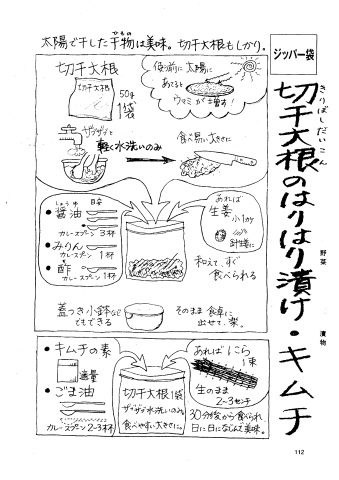 太陽で干した干物は美味。切干大根もしかり。
ひもの
ジッパー袋
切干大根のはりはり漬け・キムチ
きりぼしだいこん
野菜
漬物
切干大根
切干大根
50g
1袋
使う前に太陽に
あてると
ウマミが増す!
ザブザブと
軽く水洗いのみ
食べ易い大きさに
しょうゆ
目安
醤油
カレースプーン3杯
みりん
カレースプーン1杯
酢
カレースプーン1杯
あれば
生姜
小1ヶ
針生姜に
和えて、すぐ
食べられる
蓋つき小鉢など
でもできる
そのまま食卓に
出せて、楽。
キムチの素
適量
ごま油
カレースプーン2~3杯
切干大根1袋
ザブザブ水洗いのみ
食べやすい大きさに。
あれば にら
1束
生のまま
2~3センチ
30分後から食べられ
日に日になじんで美味。
112